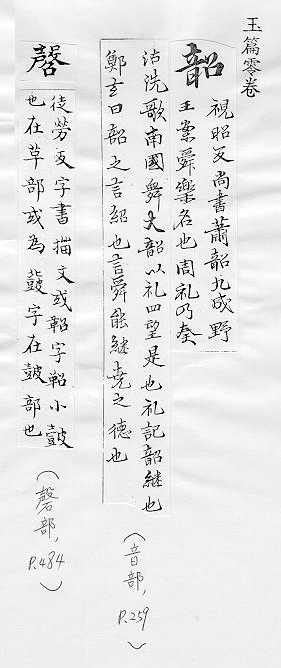 玉篇零卷
韶 視昭反尚書蕭韶九成野
王案舜樂名也周礼乃奏
沽洗歌南國舞大韶以礼四望是也礼記韶継也
鄭玄曰韶之言紹也言舜能継尭之德也
(音部, P.259)
磬 徒勞反字書描文或鞀字鞀小鼓
也在草部或為鼗字在鼓部也
(磬部, P.484)